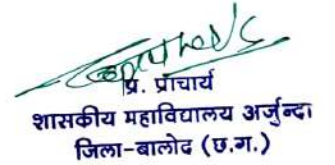 प्रि. प्राचार्य
शासकीय महाविद्यालय अर्जुन्दा
जिला-बालोद (छ.ग.)